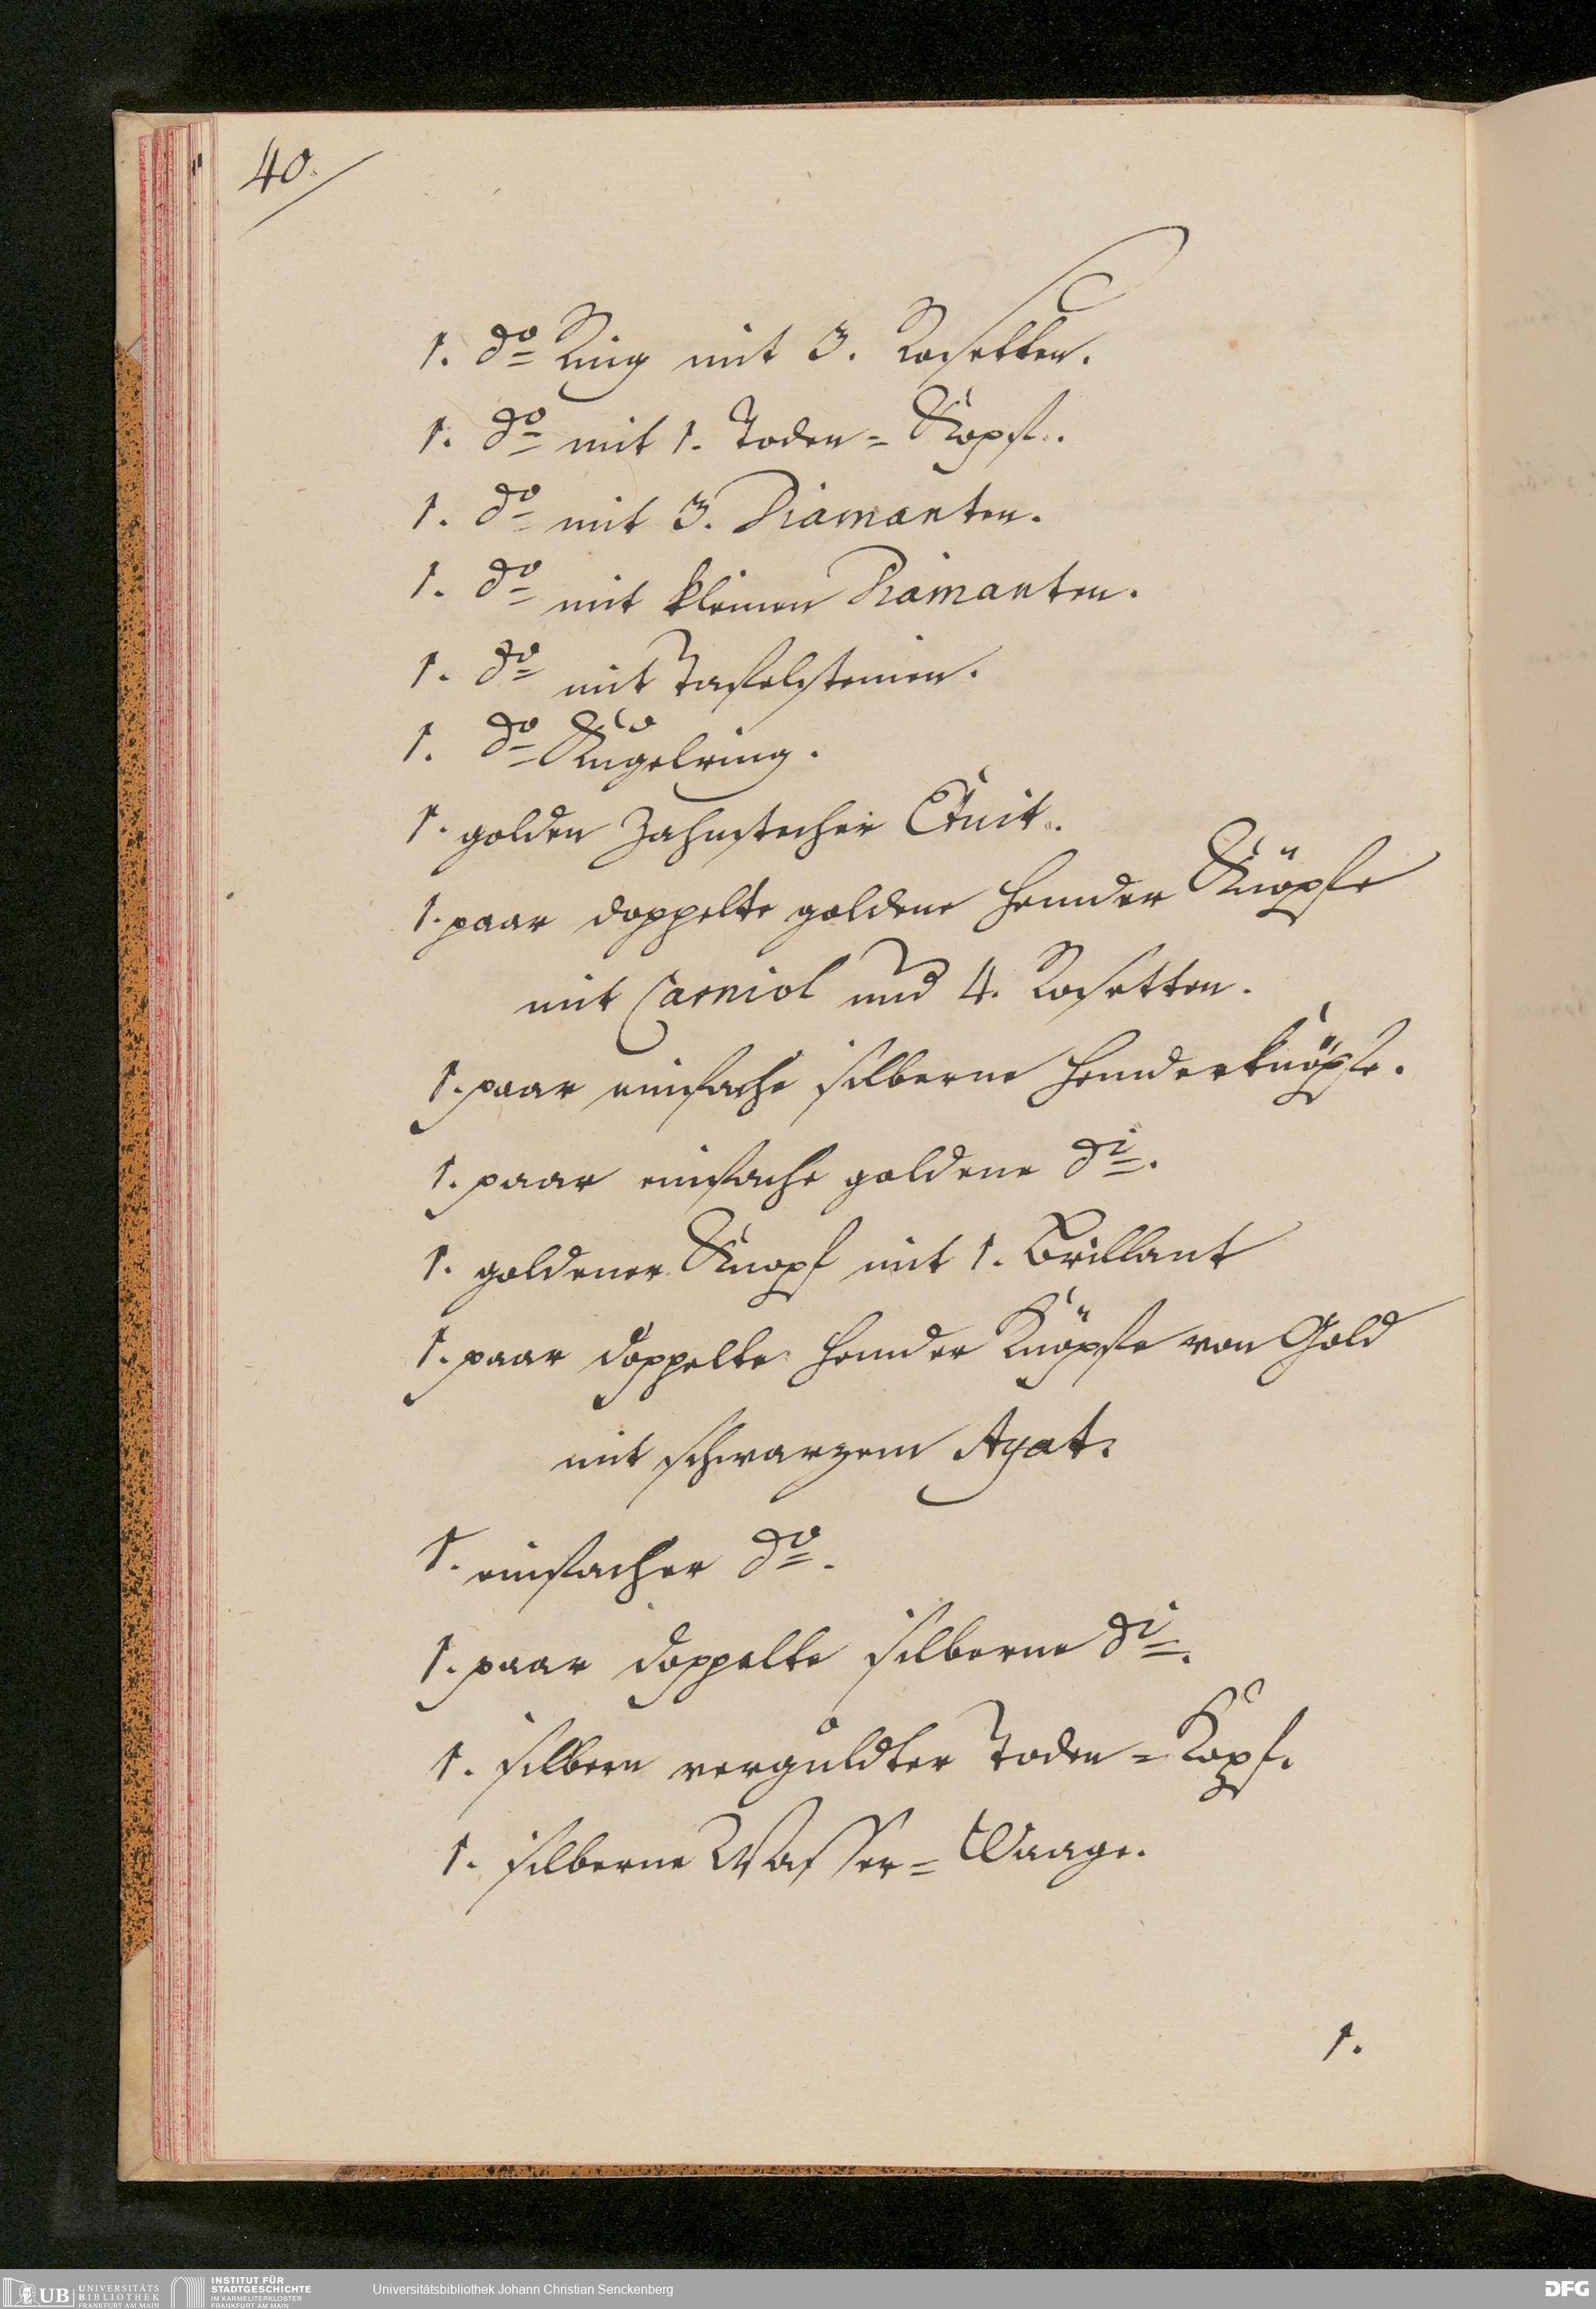 40.
1. do Ring mit 3. Rosetten.
1. do mit 1. Toden=Kopf.
1. do mit 3. Diamanten.
1. do mit kleinen Diamanten.
1. do mit Tafelsteinen.
1. do Kugelring.
1. golden Zahnstecher Etuit.
1. paar doppelte goldene Hemder Knöpfe
mit Carniol und 4. Rosetten.
1. paar einfache silberne Hemderknöpfe.
1. paar einfache goldene di.
1. goldener Knopf mit 1. Brillant
1. paar doppelte Hemder Knöpfe von Gold
mit schwarzem Agat.
1. einfacher do.
1. paar doppelte silberne di.
1. silbern verguldter Toden=Kopf.
1. silberne Wasser=Waage.
1.
UB UNIVERSITÄTS BIBLIOTHEK FRANKFURT AM MAIN
INSTITUT FÜR STADTGESCHICHTE IM KARMELITERKLOSTER FRANKFURT AM MAIN
Universitätsbibliothek Johann Christian Senckenberg
DFG